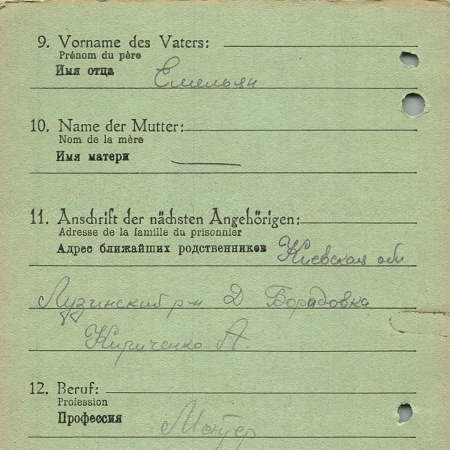 9. Vorname des Vaters:
Prénom du père
Имя отца Емельян
10. Name der Mutter:
Nom de la mère
Имя матери
11. Anschrift der nächsten Angehörigen:
Adresse de la famille du prisonnier
Адрес ближайших родственников Киевская обл
Лузинский р-н Д
Кириченко А.
12. Beruf:
Profession
Профессия Монтер